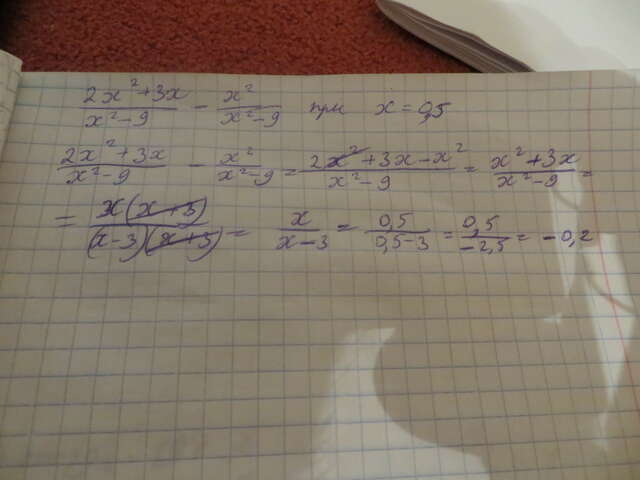 (2x²+3x)/(x²-9) - x²/(x²-9) при x = 0,5
(2x²+3x)/(x²-9) - x²/(x²-9) = (2x²+3x-x²)/(x²-9) = (x²+3x)/(x²-9) =
= (x(x+3))/((x-3)(x+3)) = x/(x-3) = 0,5/(0,5-3) = 0,5/(-2,5) = -0,2